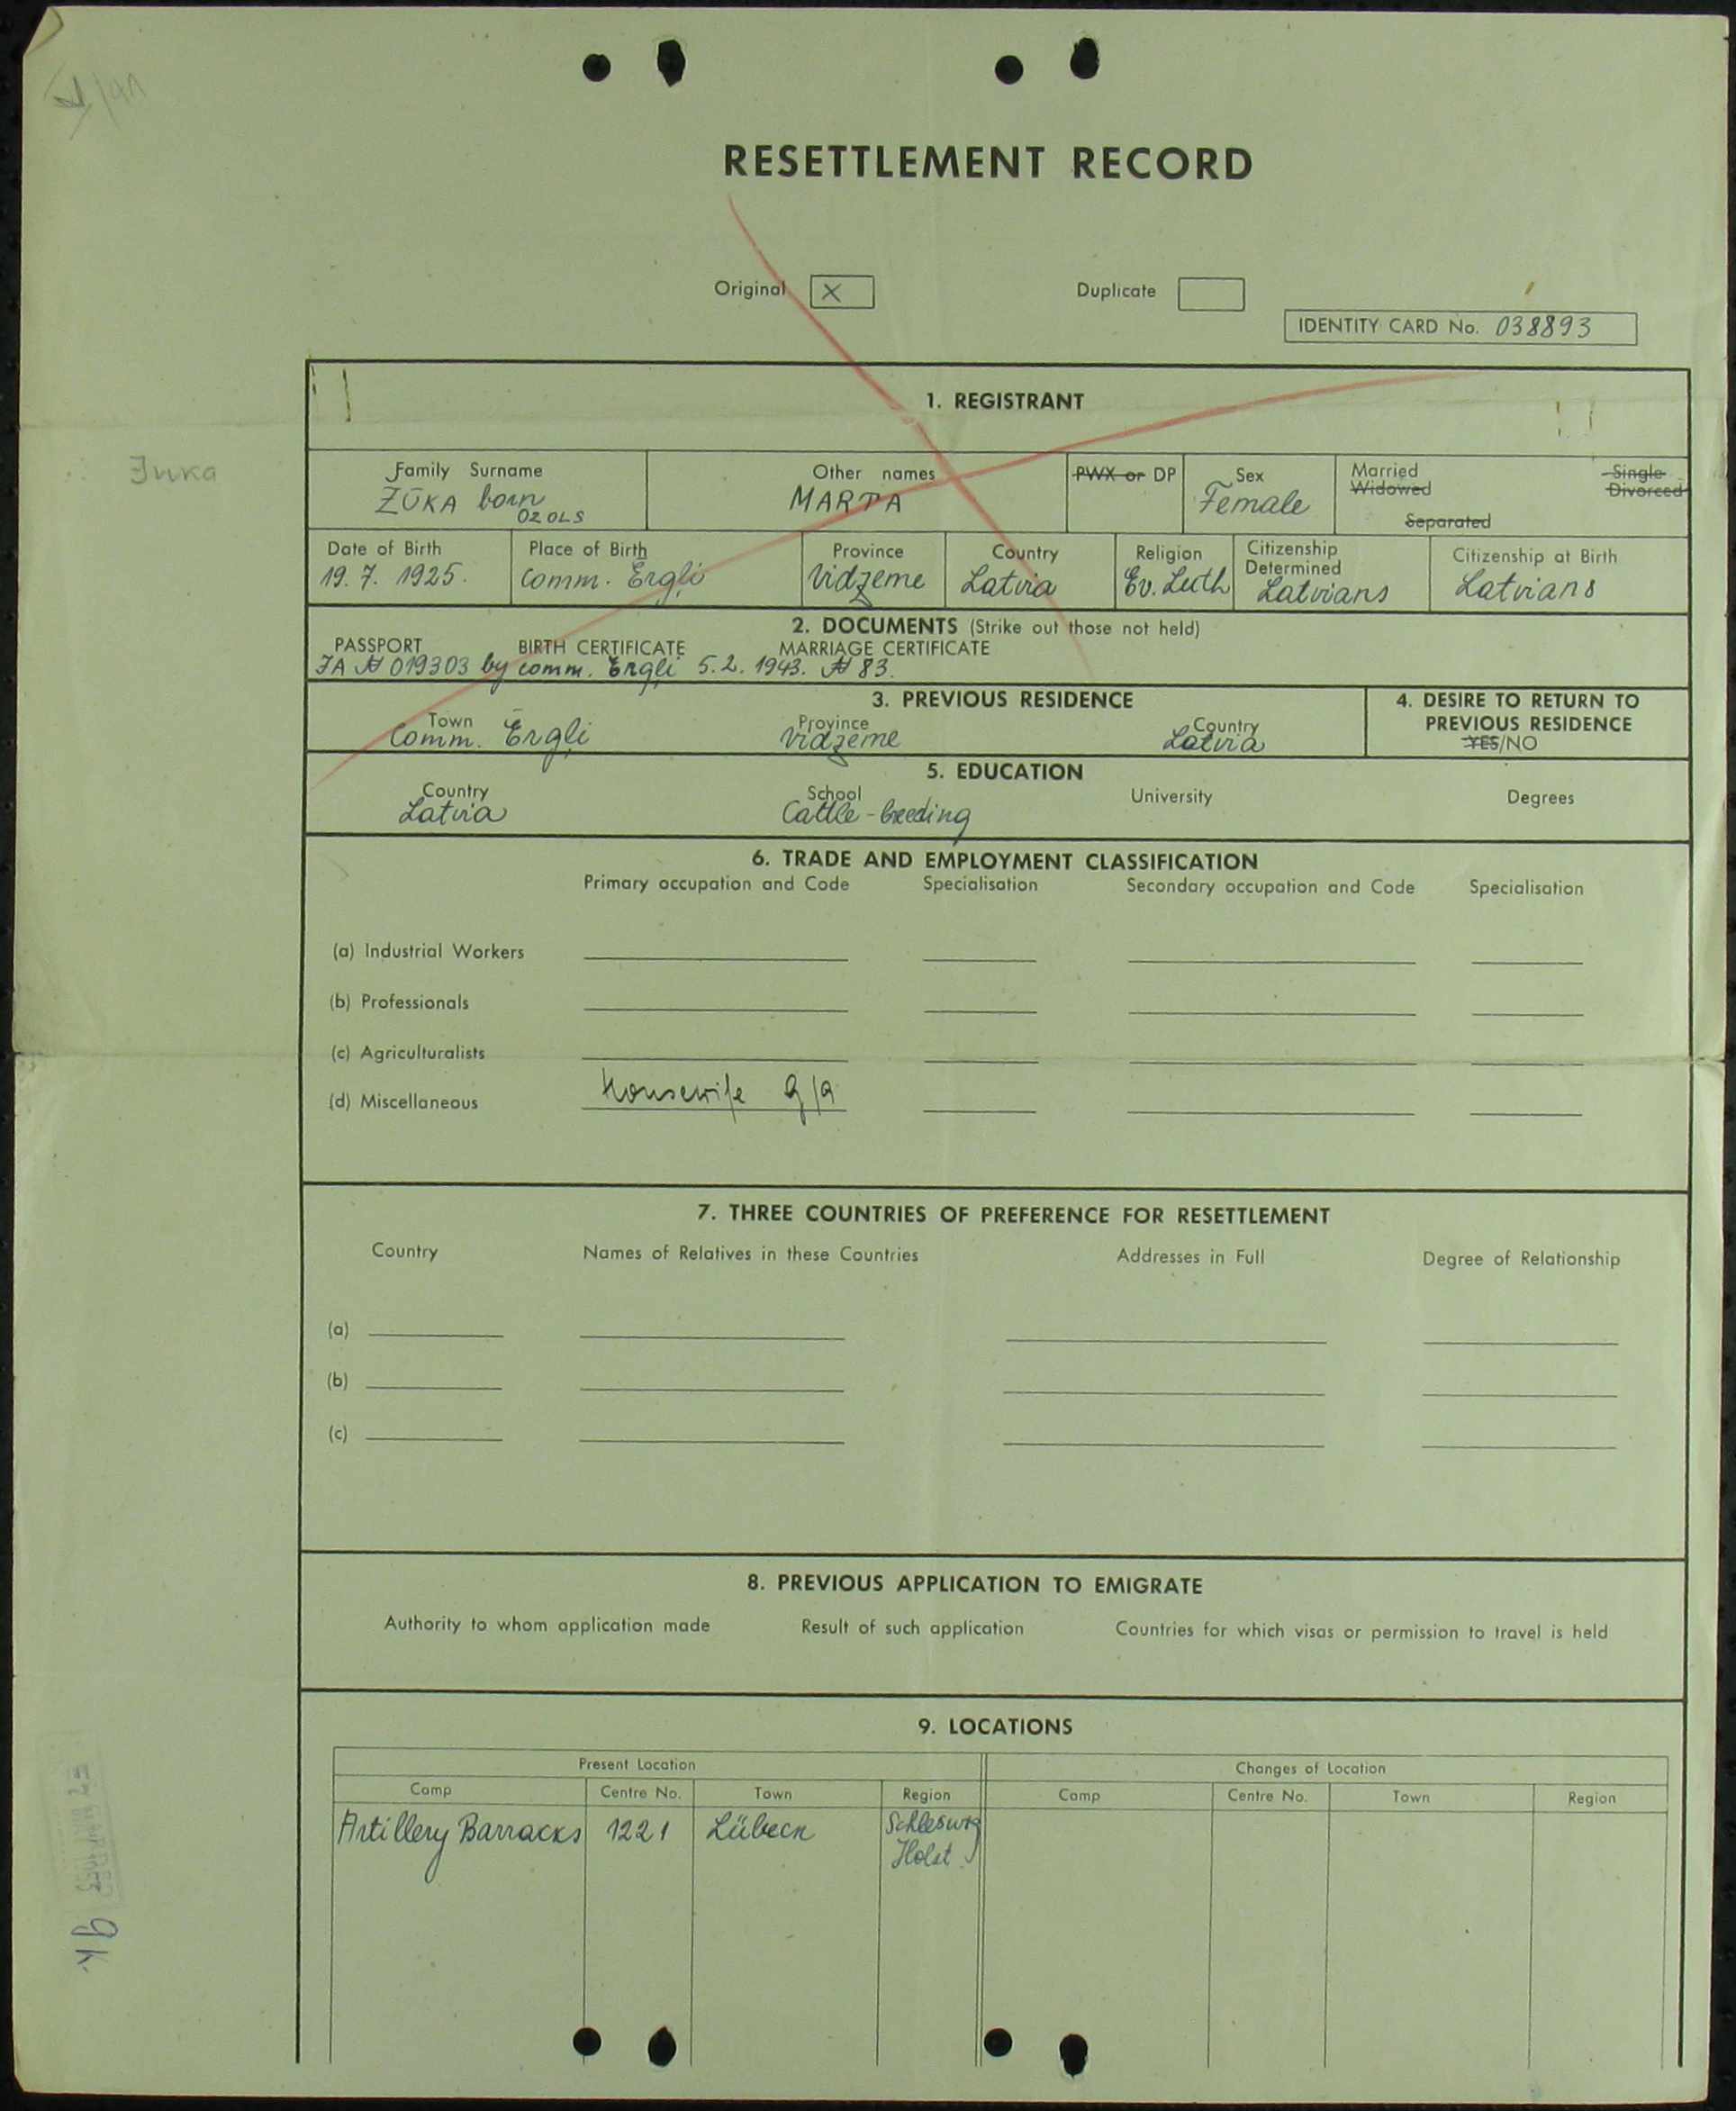 RESETTLEMENT RECORD
Original X Duplicate
IDENTITY CARD No. 038893
1. REGISTRANT
Family Surname Other names PWX or DP Sex Married Single
Widowed Divorced
Separated
ZŪKA born MARTA Female
OZOLS
Date of Birth Place of Birth Province Country Religion Citizenship Determined Citizenship at Birth
19. 7. 1925. Comm. Ērgļi Vidzeme Latvia Ev. Luth Latvians Latvians
2. DOCUMENTS (Strike out those not held)
PASSPORT BIRTH CERTIFICATE MARRIAGE CERTIFICATE
JA № 019303 by comm. Ērgļi 5. 2. 1943. № 83.
3. PREVIOUS RESIDENCE
Town Province Country
Comm. Ērgļi Vidzeme Latvia
4. DESIRE TO RETURN TO
PREVIOUS RESIDENCE
YES/NO
5. EDUCATION
Country School University Degrees
Latvia Cattle-breeding
6. TRADE AND EMPLOYMENT CLASSIFICATION
Primary occupation and Code Specialisation Secondary occupation and Code Specialisation
(a) Industrial Workers
(b) Professionals
(c) Agriculturalists
(d) Miscellaneous Housewife
7. THREE COUNTRIES OF PREFERENCE FOR RESETTLEMENT
Country Names of Relatives in these Countries Addresses in Full Degree of Relationship
(a)
(b)
(c)
8. PREVIOUS APPLICATION TO EMIGRATE
Authority to whom application made Result of such application Countries for which visas or permission to travel is held
9. LOCATIONS
Present Location Changes of Location
Camp Centre No. Town Region Camp Centre No. Town Region
Artillery Barracks 1221 Lübeck Schleswig
Holst.